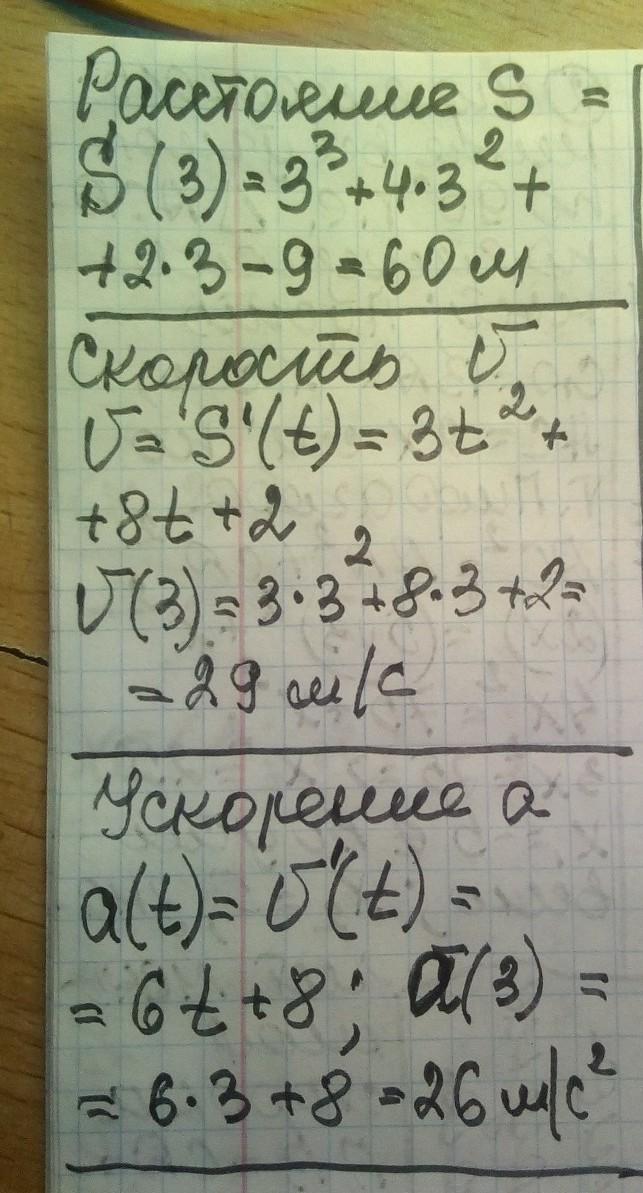 Расстояние S =
S(3) = 3³ + 4·3² +
+ 2·3 - 9 = 60 м
Скорость V
V = S'(t) = 3t² +
+ 8t + 2
V(3) = 3·3² + 8·3 + 2 =
= 29 м/с
Ускорение a
a(t) = V'(t) =
= 6t + 8; a(3) =
= 6·3 + 8 = 26 м/с²